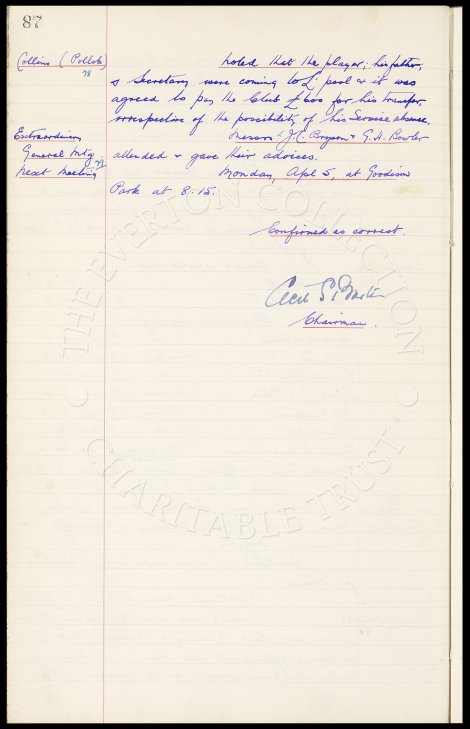 87
Collins (Pollok) noted that the player, his father,
& Secretary were coming to L'pool & it was
agreed to pay the Club £600 for his transfer,
irrespective of the possibility of his Service absence.
Extraordinary Messrs J.C. Bryson & G.H. Bowler
General Mtg attended & gave their advices.
Next Meeting Monday, Apl 5, at Goodison
Park at 8.15.
Confirmed as correct.
Cecil S.
Chairman.
THE EVERTON COLLECTION
CHARITABLE TRUST